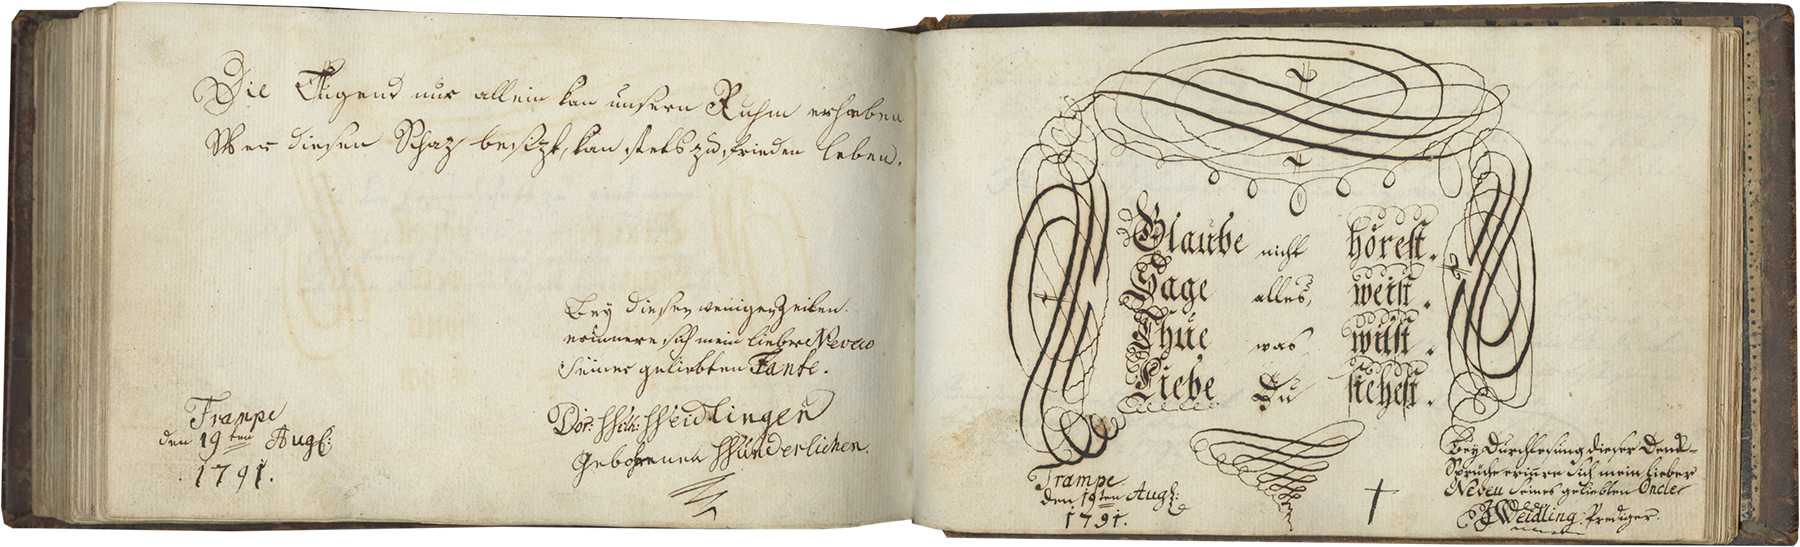 Die Tugend nur allein kan unsern Ruhm erheben
Wer diesen Schaz besizt, kan stets zufrieden leben.
Bey diesen wenigen Zeilen
erinnere sich mein lieber Neveu
seiner geliebten Tante.
Dor: Wilh: Weidlingen
gebohrnen Wünderlichen.
Trampe
den 19ten Augt:
1791.
Glaube nicht hörest.
Sage alles, weist.
Thue was wilst.
Liebe Du siehest.
Trampe.
den 19ten Augt:
1791.
Bey Durchlesung dieser Denk-
Sprüche erinnre sich mein lieber
Neveu seines geliebten Oncles
Weidling. Prediger.